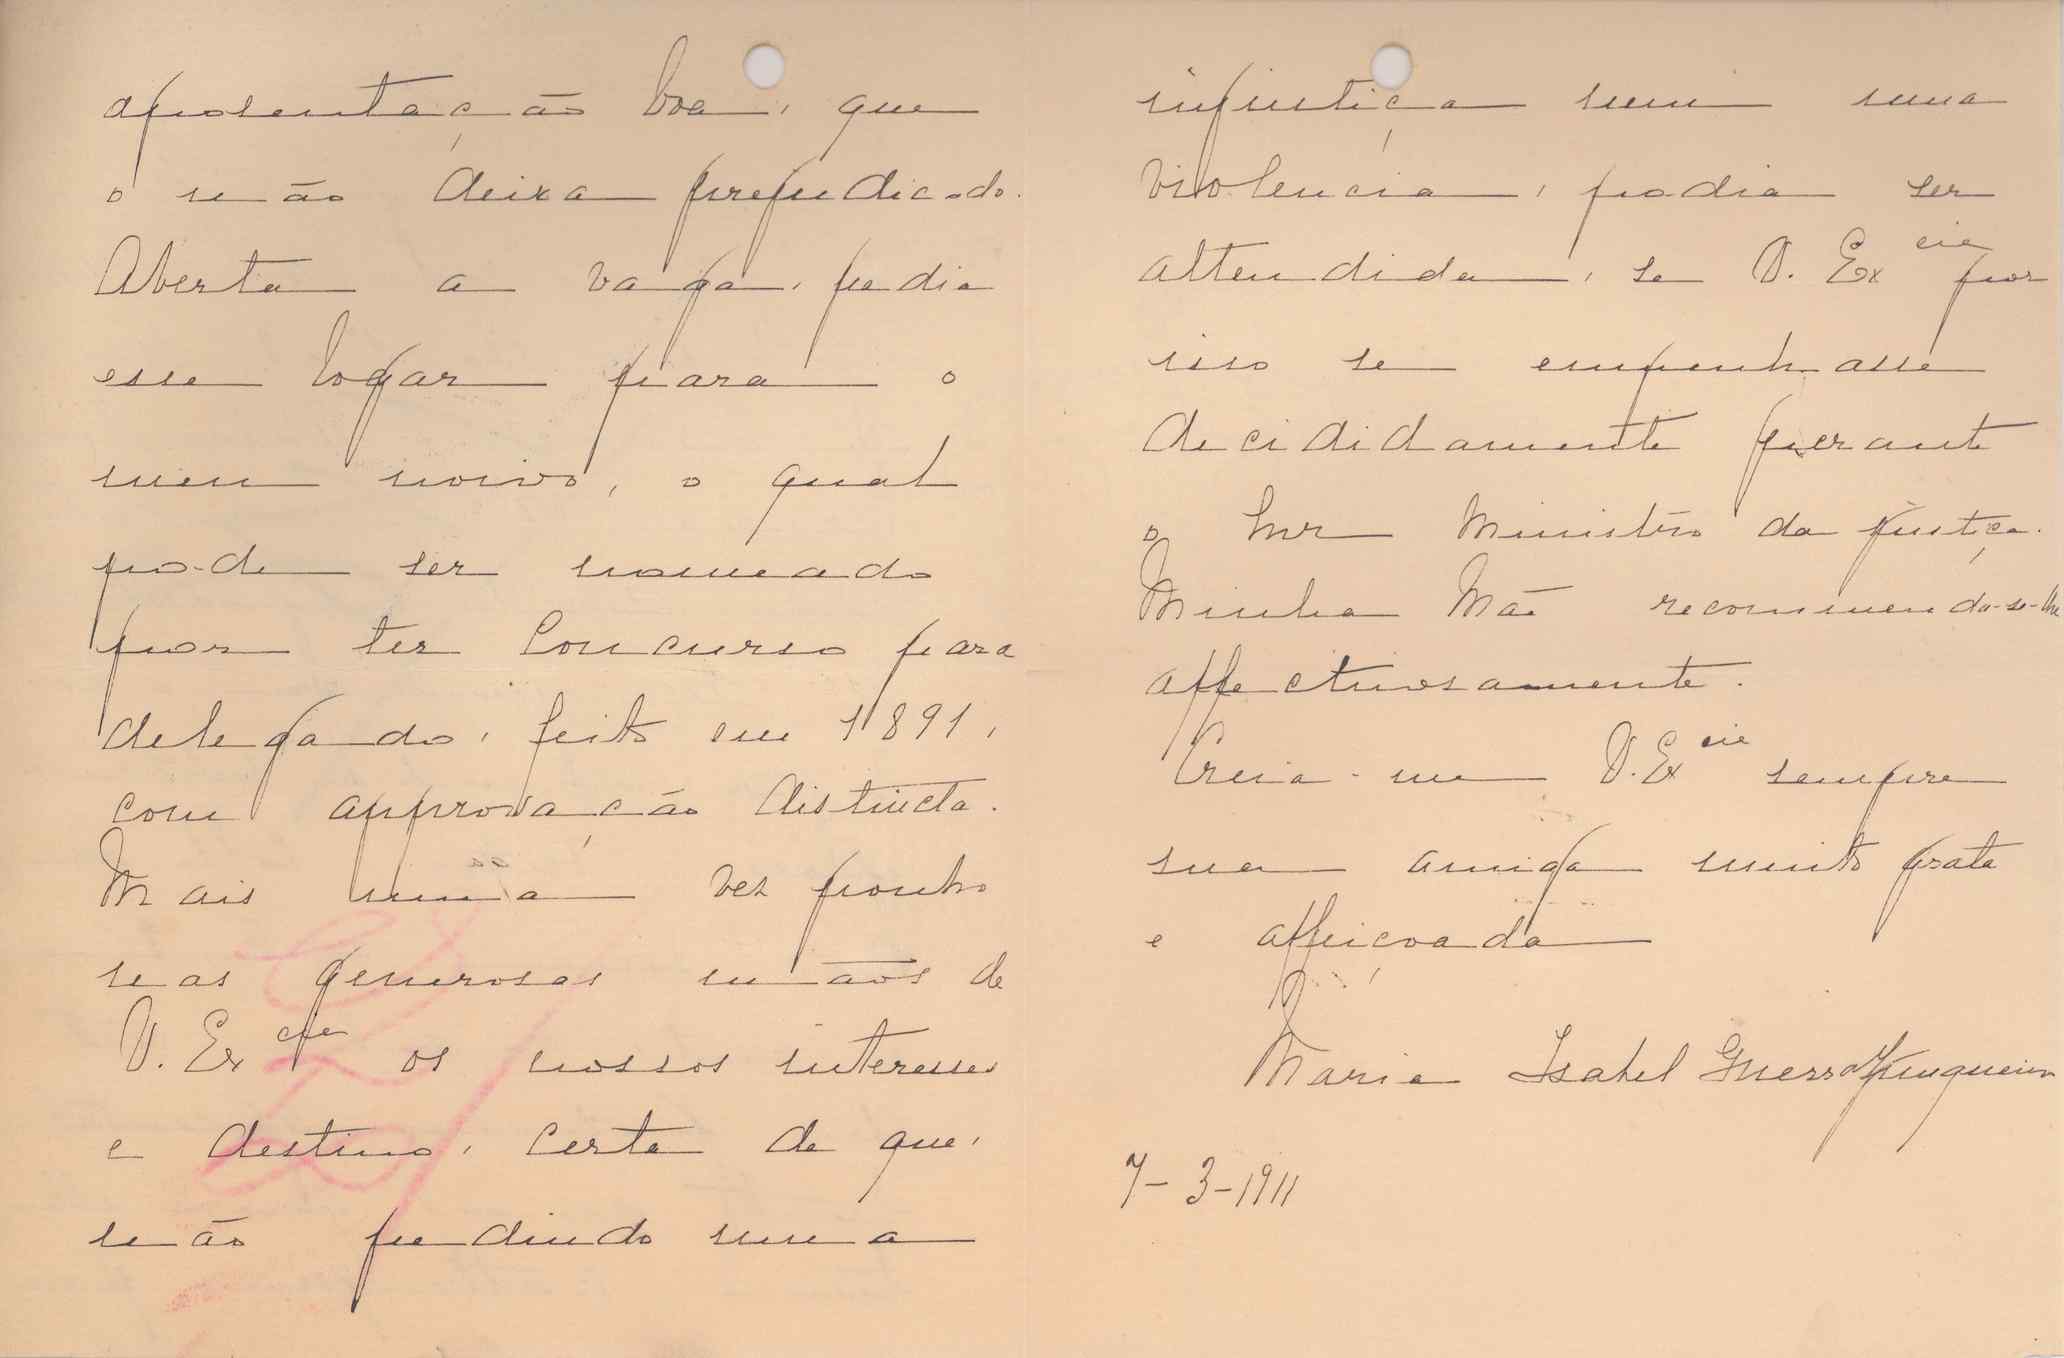 aposentação boa, que
o não deixa prejudicado.
Aberta a vaga, pedia
esse logar para o
meu noivo, o qual
pode ser nomeado
por ter concurso para
delegado, feito em 1891,
com approvação distincta.
Mais uma vez ponho
nas generosas mãos de
V. Ex.cia os nossos interesses
e destino, certa de que,
não pedindo uma
injustiça nem uma
violencia, podia ser
attendida, se V. Ex cia por
isso se empenhasse
decididamente perante
o Snr Ministro da Justiça.
Minha Mãe recommenda-se-lhe
affectuosamente.
Creia-me V. Ex cia sempre
sua amiga muito grata
e affeiçoada
Maria Isabel Guerra Junqueiro
7-3-1911